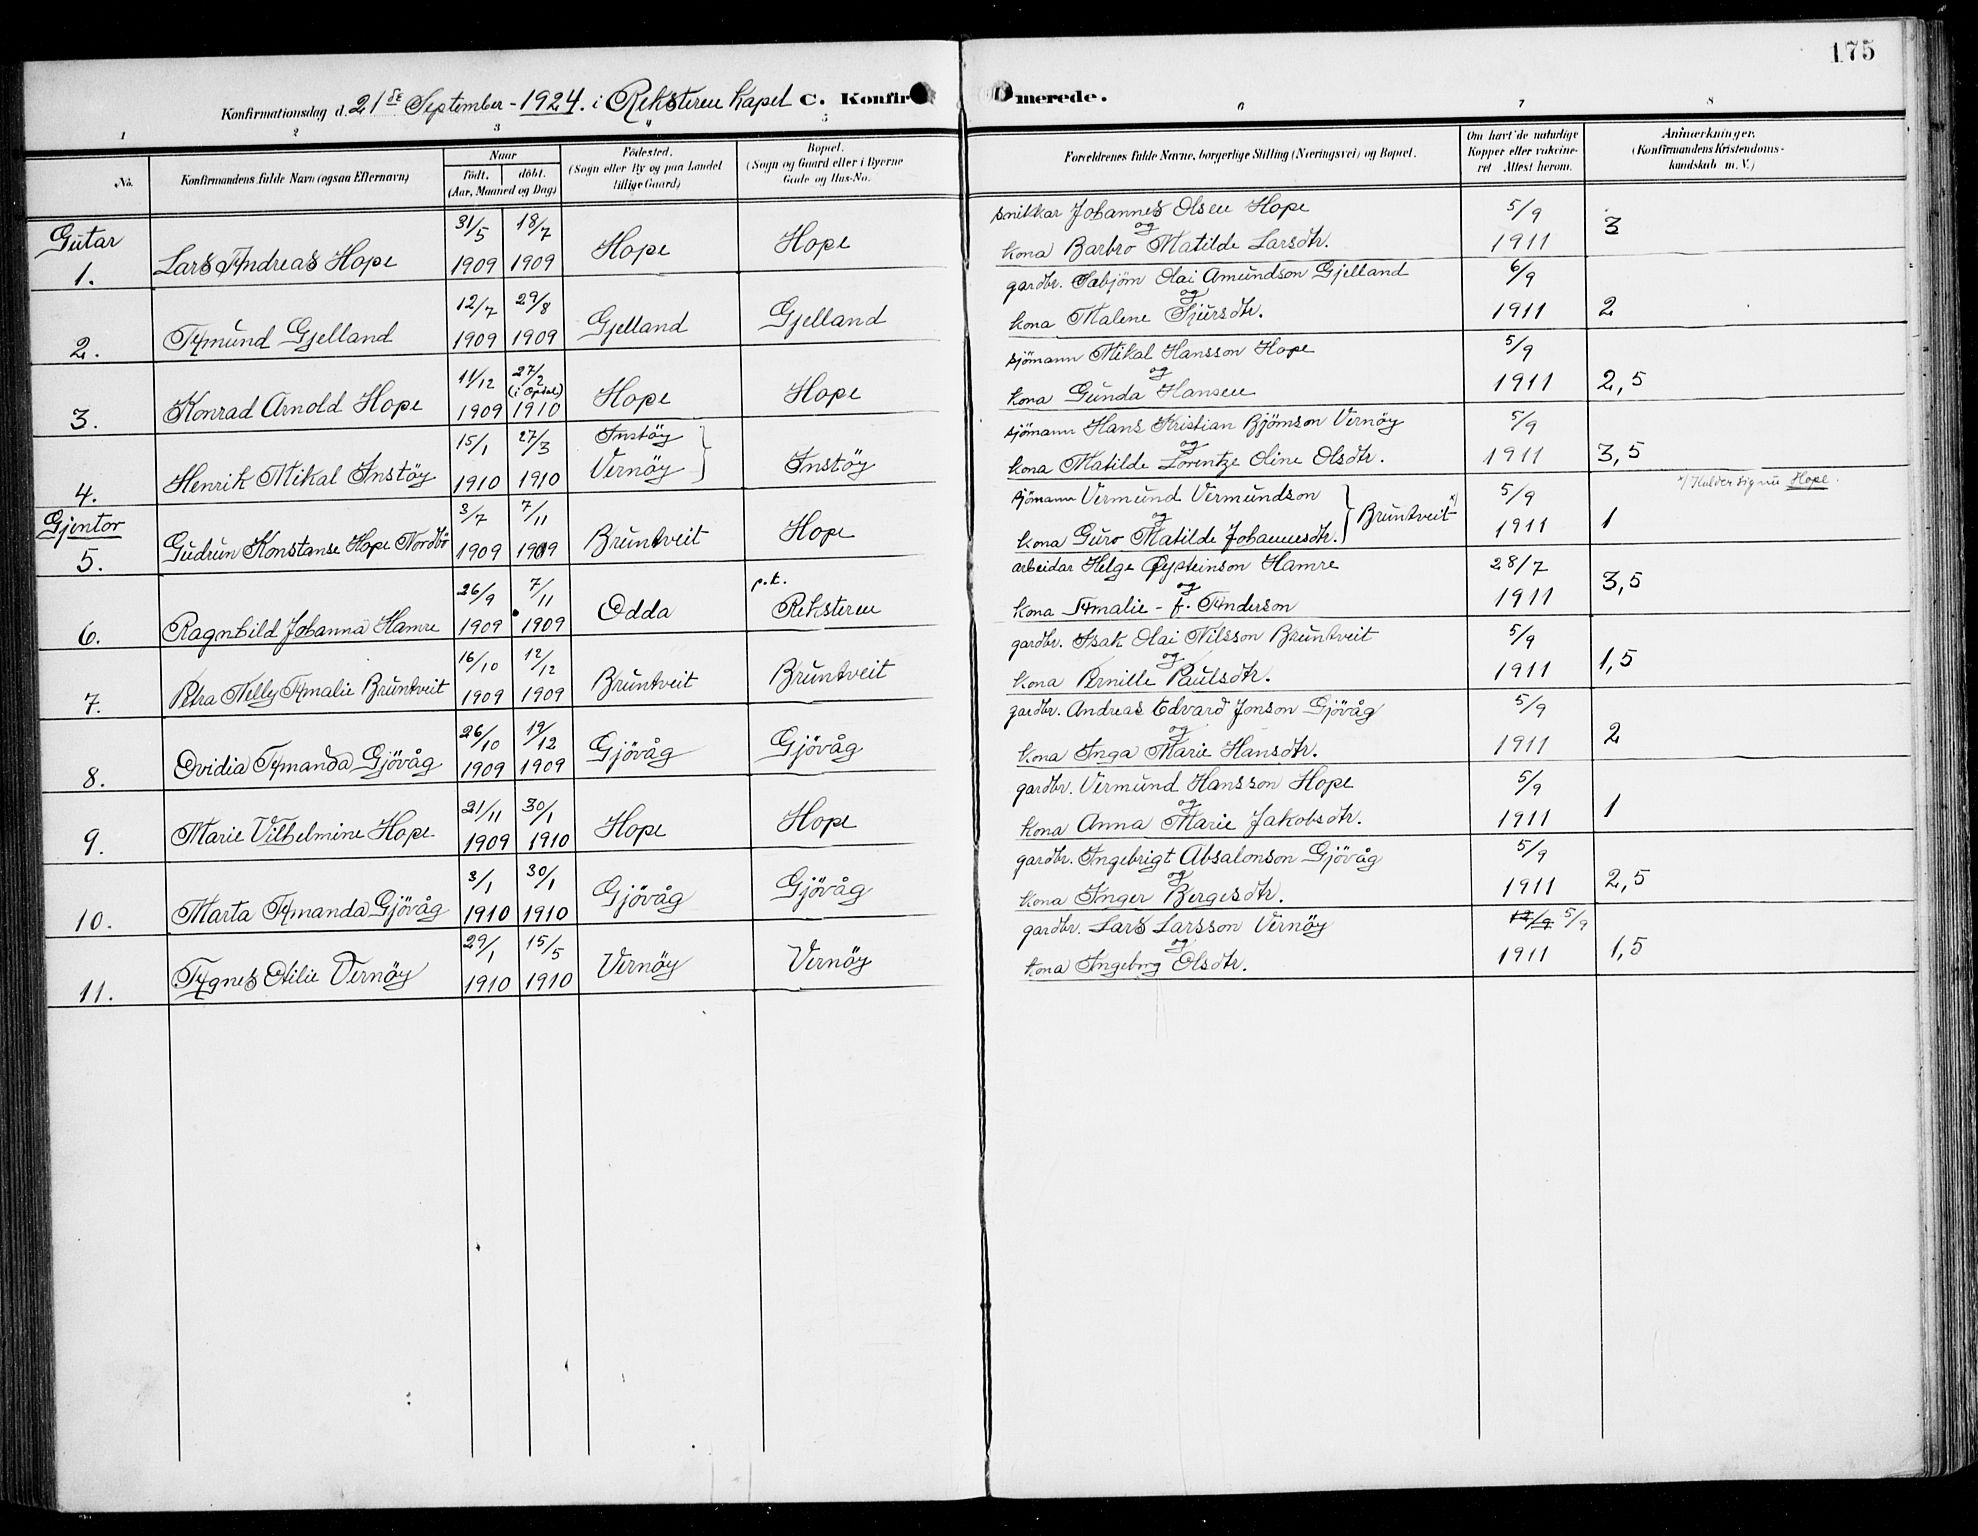 175
Konfirmationsdag d. 21de September - 1924. i Reksteren kapel C. Konfirmerede.
1 2 3 4 5 6 7 8
No. Konfirmandens fulde Navn (ogsaa Efternavn) Naar født. døbt. (Aar, Maaned og Dag) Fødested. (Sogn eller By og paa Landet tillige Gaard) Bopæl. (Sogn og Gaard eller i Byerne Gade og Hus-No.
Forældrenes fulde Navne, borgerlige Stilling (Næringsvei) og Bopæl. Om havt de naturlige Kopper eller vakcineret Attest herom. Anmærkninger, (Konfirmandens Kristendomskundskab m. V.)
Gutar
1. Lars Andreas Hope 31/5 1909 18/7 1909 Hope Hope snikkar Johannes Olsen Hope og kona Barbro Matilde Larsdtr. 5/9 1911 3
2. Amund Gjelland 12/7 1909 29/8 1909 Gjelland Gjelland gardbr. Sæbjörn Olai Amundson Gjelland og kona Malene Sjursdtr. 6/9 1911 2
3. Konrad Arnold Hope 11/12 1909 27/2 (i Opdal) 1910 Hope Hope sjömann Mikal Hansson Hope og kona Gunda Hansen 5/9 1911 2,5
4. Henrik Mikal Instöy 15/1 1910 27/3 1910 Instöy Vernöy Instöy sjömann Hans Kristian Bjørnson Vernöy og kona Matilde Lorentze Oline Olsdtr. 5/9 1911 3,5
Gjentor
5. Gudrun Konstanse Hope Nordbö 3/7 1909 7/11 1909 Bruntveit Hope sjömann Vermund Vermundson og kona Guro Matilde Johannesdtr. Bruntveit x) 5/9 1911 1 x) Kalder sig nu Hope.
6. Ragnhild Johanna Hamre 26/9 1909 7/11 1909 Odda p.t. Reksteren arbeidar Helge Øysteinson Hamre og kona Amalie - f. Anderson 28/7 1911 3,5
7. Petra Nelly Amalie Bruntveit 16/10 1909 12/12 1909 Bruntveit Bruntveit gardbr. Isak Olai Nilsson Bruntveit og kona Pernille Paulsdtr. 5/9 1911 1,5
8. Ovidia Amanda Gjövåg 26/10 1909 19/12 1909 Gjövåg Gjövåg gardbr. Andreas Edvard Jonson Gjövåg og kona Inga Marie Hansdtr. 5/9 1911 2
9. Marie Vilhelmine Hope 21/11 1909 30/1 1910 Hope Hope gardbr. Vermund Hansson Hope og kona Anna Marie Jakobsdtr. 5/9 1911 1
10. Marta Amanda Gjövåg 3/1 1910 30/1 1910 Gjövåg Gjövåg gardbr. Ingebrigt Absalonson Gjövåg og kona Inger Bergesdtr. 5/9 1911 2,5
11. Agnes Otilie Vernöy 29/1 1910 15/5 1910 Vernöy Vernöy gardbr. Lars Larsson Vernöy og kona Ingeborg Olsdtr. 5/9 1911 1,5